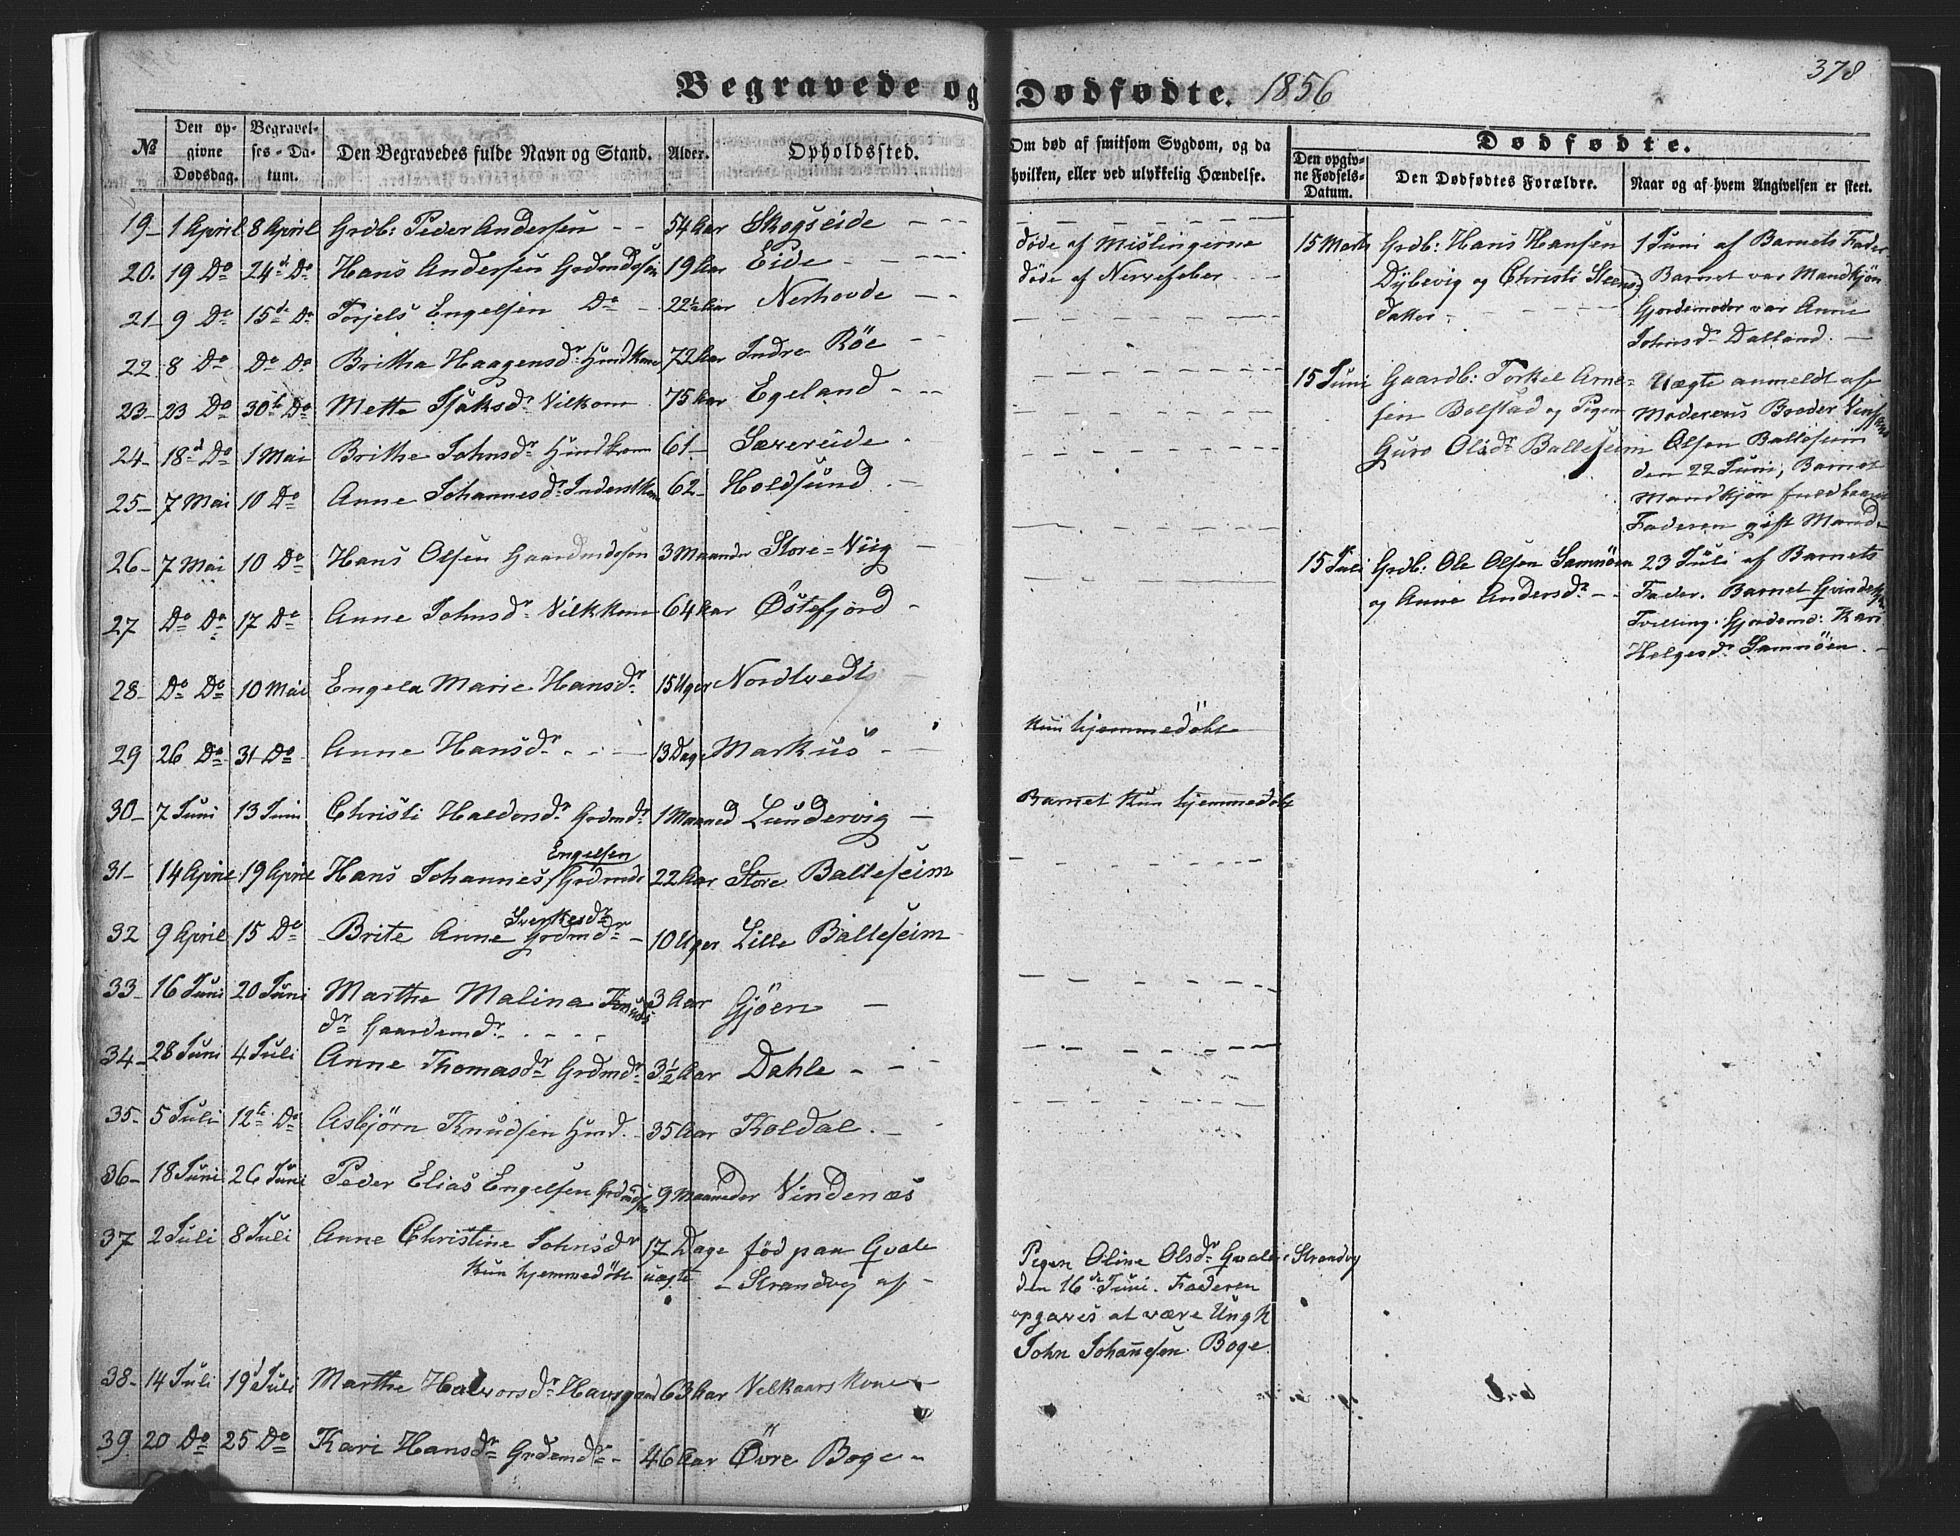 378
Begravede og Dødfødte. 1856
№
Den opgivne Dødsdag.
Begravelses-Datum.
Den Begravedes fulde Navn og Stand.
Alder.
Opholdssted.
Om død af smitsom Sygdom, og da hvilken, eller ved ulykkelig Hændelse.
Dødfødte.
Den opgivne Fødsels-Datum.
Den Dødfødtes Forældre.
Naar og af hvem Angivelsen er skeet.
19 – 1 April 8 April Grdb: Peder Andersen - - 54 Aar Skogseide
20. 19 Do 24d Do Hans Andersen Grdmdssøn 19 Aar Eide døde af Mislingerne
21 – 9 Do 15de Do Torjels Engelsen Do 22½ Aar Nerhovde døde af Nervefeber
22 8 Do Do Do Britha Haagensdr Huusdkone 72 Aar Indre Röe
23 – 23 Do 30te Do Mette Isaksdr Vilkone 75 Aar Egeland
24 – 18d Do 1 Mai Brithe Johnsdr Huusdkone 61 – Sævereide
25 – 7 Mai 10 Do Anne Johannesdr Inderstkone 62 – Holdsund
26 – 7 Mai 10 Do Hans Olsen Gaardmdssøn 3 Maaneder Store = Viig
27 Do Do 17 Do Anne Johnsdr Vilkkone 64 Aar Östefjord
28 – Do Do 10 Mai Engela Marie Hansdr 15 Uger Nordtvedt
29 26 Do 31 Do Anne Hansdr 13 Dage Markhus Kun hjemmedöbt
30 – 7 Juni 13 Juni Christi Haldorsdr Grdmdr 1 Maaned Lundervig Barnet kun hjemmedöbt
31 – 14 April 19 April Hans Johannes Engelsen Grdmds 22 Aar Store Balteseim
32 9 April 15 Do Brite Anne Sverkesdr Grdmdr 10 Uger Lille Balteseim
33 – 16 Juni 20 Juni Marthe Malina Knuds 3 Aar Gjöen
dr Gaardemdr
34 – 28 Juni 4 Juli Anne Thomasdr Grdmdr 3½ Aar Dahle
35 – 5 Juli 12te Do Asbjörn Knudsen Huusd. 35 Aar Koldal
36 – 18 Juni 26 Juni Peder Elias Engelsen Grdmds 9 Maaneder Vindenæs
37 2 Juli 8 Juli Anne Christine Johnsdr 17 Dage föd paa Gvale
Kun hjemmedöbt uægte – Strandvig af
Pigen Oline Olsdr Gvale i Strandvig
den 16de Juni. Faderen
opgaves at være Ungk
John Johannesen Boge
38 – 14 Juli 19d Juli Marthe Halvorsdr Havsgaard 63 Aar Velkaarskone
39 20 Do 25 Do Kari Hansdr Grdemdr 46 Aar Övre Boge
15 Marts Grdb: Hans Hansen
Dybevig og Christi Steens
datter
1 Juni af Barnets Fader
Barnet var Mandkjön
Gjordemoder var Anne
Johnsdr Dalland.
15 Juni Gaardb: Torkel Arne-
sen Bolstad og Pigen
Guro Olsdr Balteseim
Uægte anmeldt af
Moderens Broder
Olsen Balteseim
den 22 Juni, Barnet
Mandkjön fuldbaaret
Faderen gift Mand
15 Juli Grdb: Ole Olsen Samnöen
og Anne Andersdr
23 Juli af Barnets
Fader. Barnet Qvindekjön
Tvilling. Gjordemd: Kari
Helgesdr Samnöen.